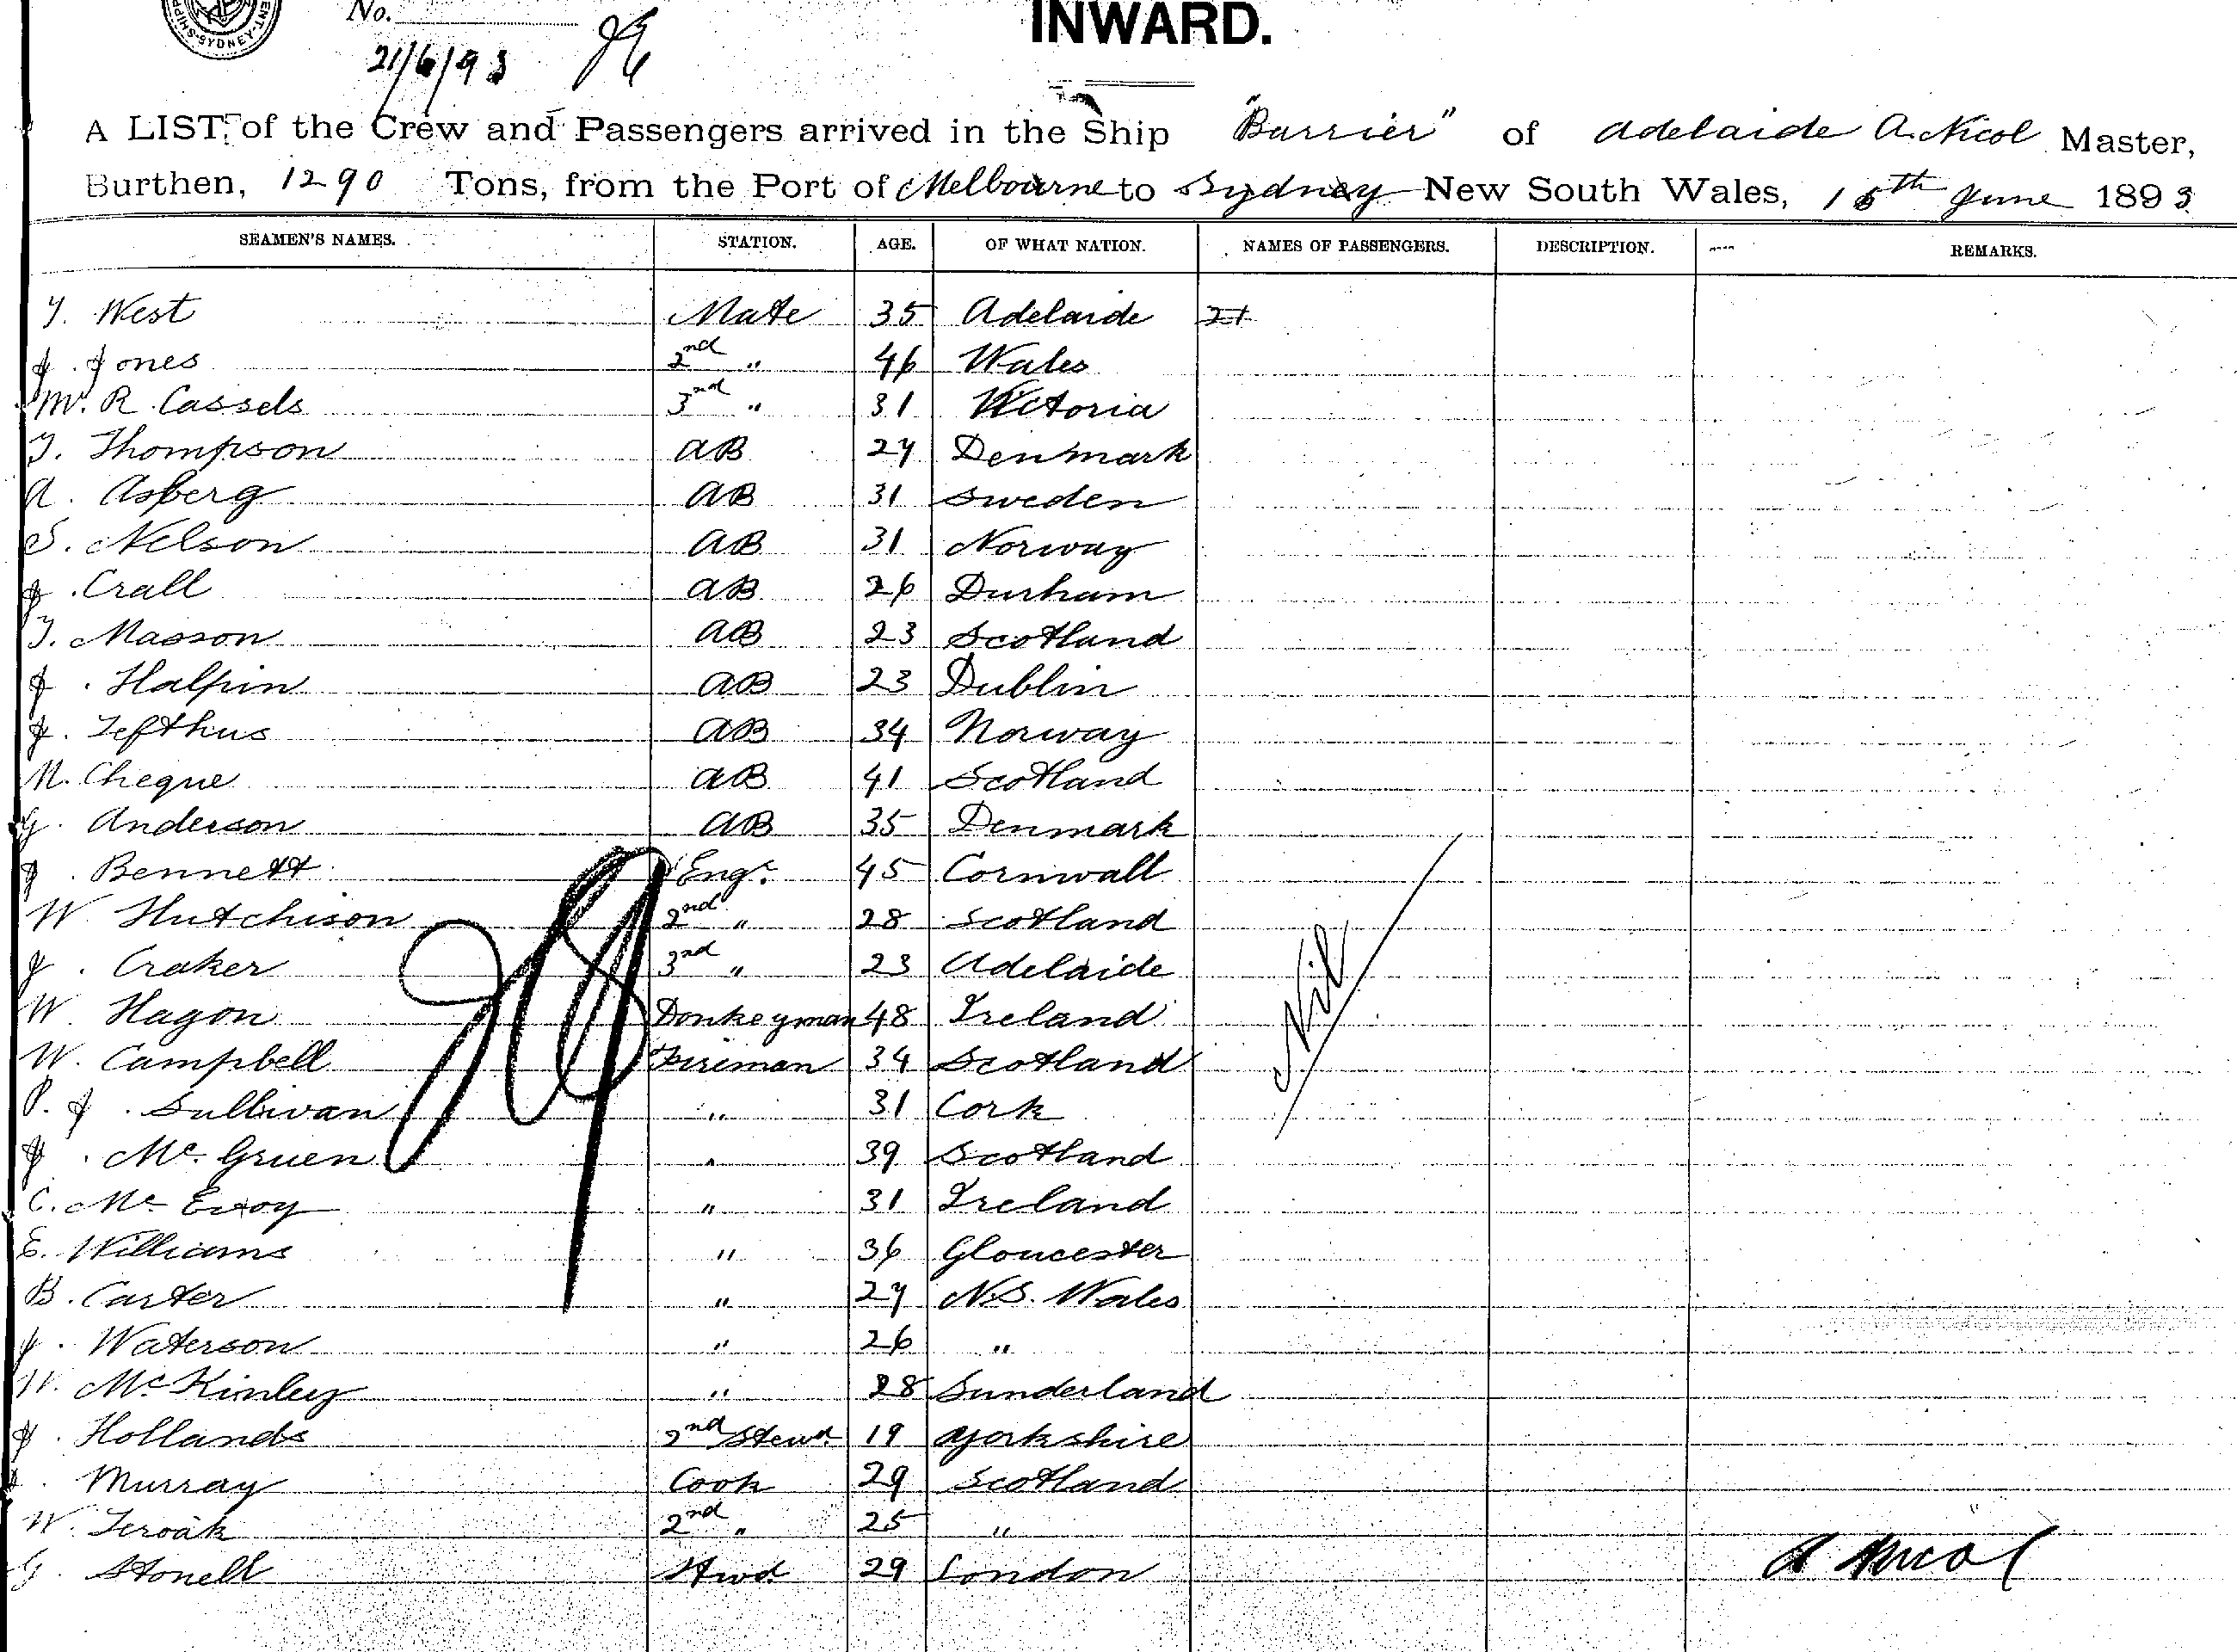 No.
SYDNEY
21/6/93
INWARD.
A LIST, of the Crew and Passengers arrived in the Ship "Barrier" of Adelaide A. Nicol Master,
Burthen, 1290 Tons, from the Port of Melbourne to Sydney New South Wales, 15th June 1893
SEAMEN'S NAMES. STATION. AGE. OF WHAT NATION. NAMES OF PASSENGERS. DESCRIPTION. REMARKS.
West Mate 35 Adelaide
J. Jones 2nd " 46 Wales
R. Cassels 3rd " 31 Victoria
T. Thompson AB 27 Denmark
A. Asberg AB 31 Sweden
S. Nelson AB 31 Norway
J. Crall AB 26 Durham
T. Masson AB 23 Scotland
J. Halpin AB 23 Dublin
J. AB 34 Norway
N. Cheque AB 41 Scotland
G. Anderson AB 35 Denmark
J. Bennett Engr. 45 Cornwall
W. Hutchison 2nd " 28 Scotland
J. Craker 3rd " 23 Adelaide
W. Hagon Donkeyman 48 Ireland
W. Campbell Fireman 34 Scotland
P. J. Sullivan " 31 Cork
J. Mc. Gruen " 39 Scotland
C. Mc Evoy " 31 Ireland
E. Williams " 36 Gloucester
B. Carter " 27 N.S. Wales
J. Waterson " 26 "
W. McKinley " 28 Sunderland
J. Hollands 2nd Stewd 19 Yorkshire
Murray Cook 29 Scotland
W. 2nd " 25 "
G. Stonell Stwd 29 London
Nil
A Nicol